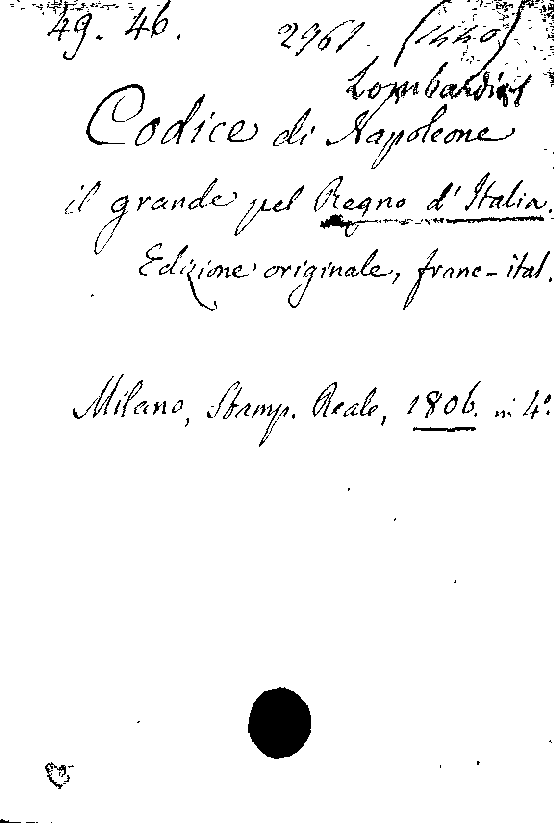 49. 46. 2961 (1440)
Lombardia
Codice di Napoleone
il grande pel Regno d'Italia.
Edizione originale, franc-ital.
Milano, Stamp. Reale, 1806. in 4º.